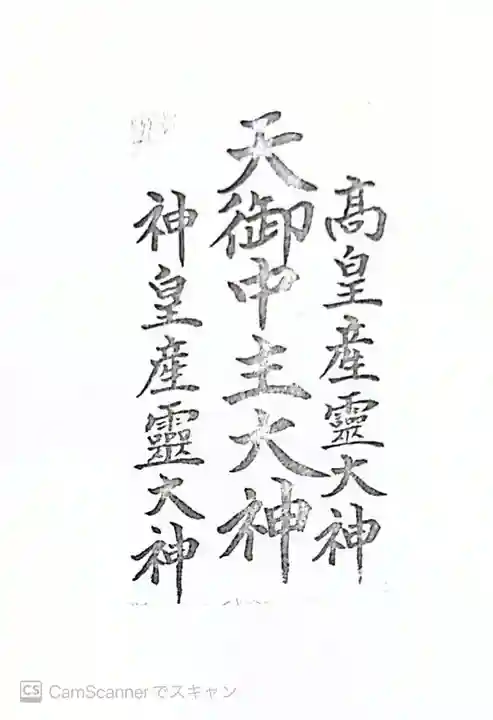 高皇産靈大神
天御中主大神
神皇産靈大神
CS CamScannerでスキャン